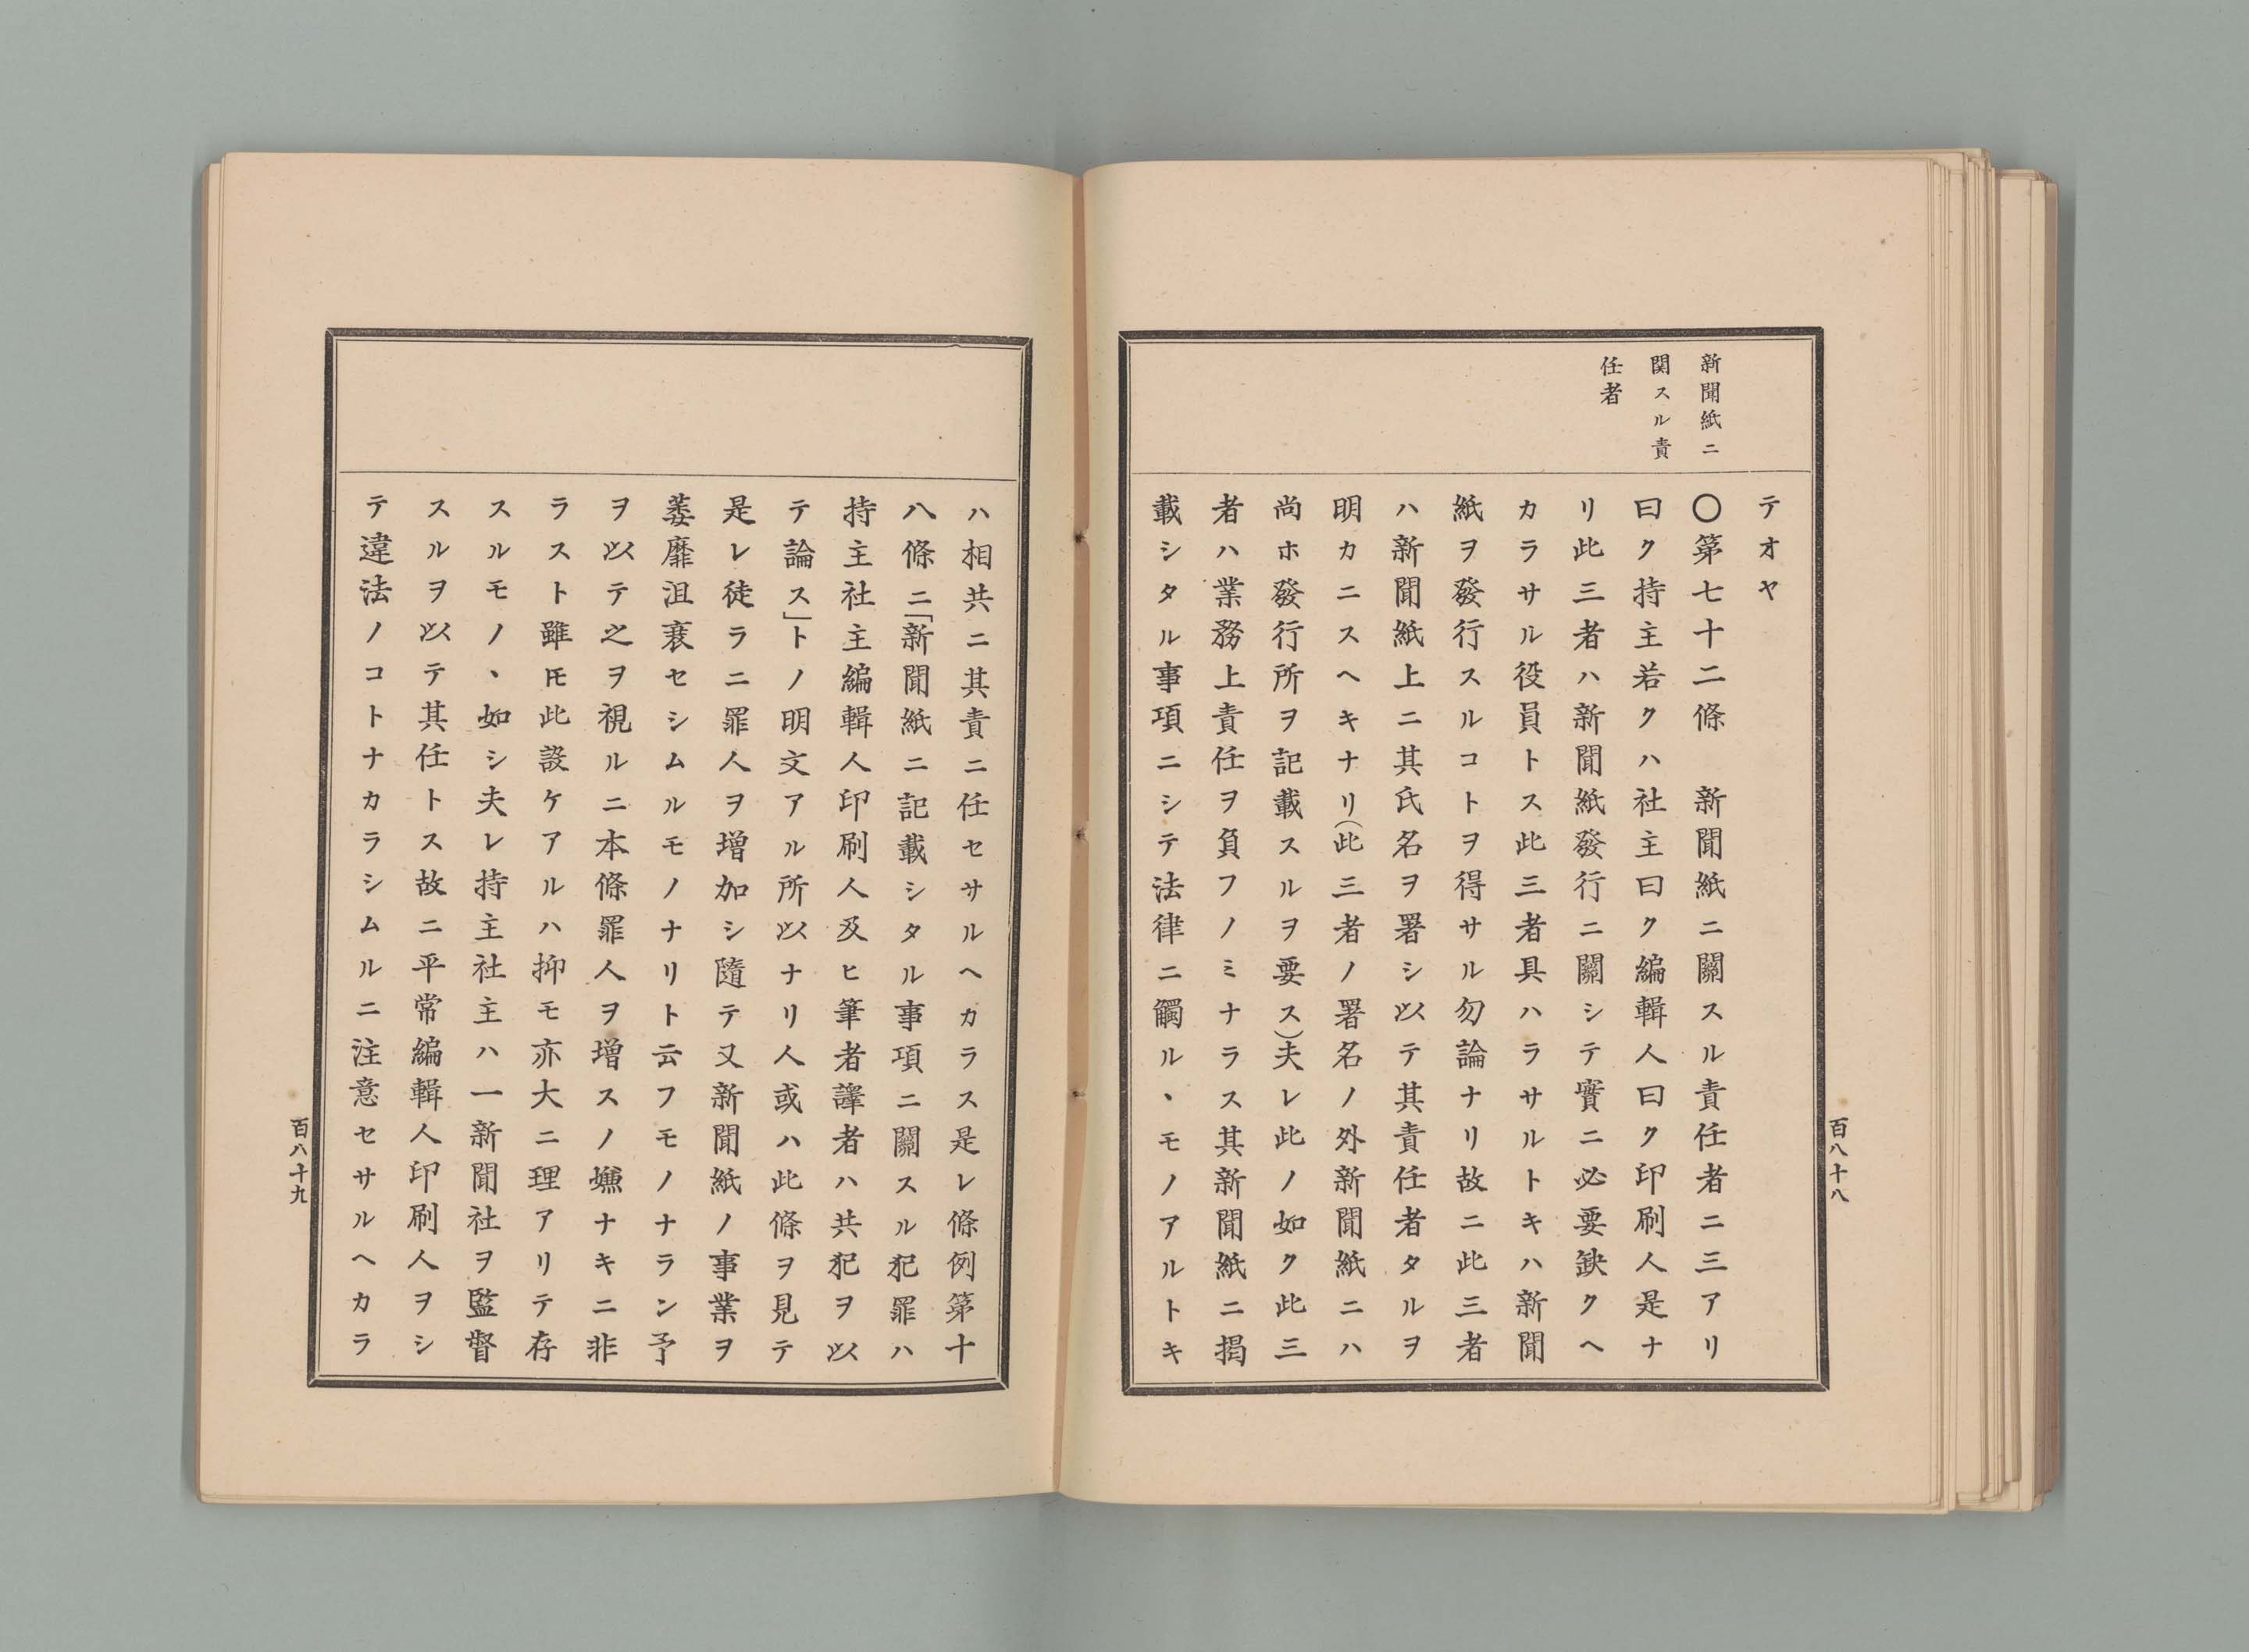 新聞紙ニ
関スル責
任者
テオヤ
〇第七十二條　新聞紙ニ關スル責任者ニ三アリ
曰ク持主若クハ社主曰ク編輯人曰ク印刷人是ナ
リ此三者ハ新聞紙發行ニ關シテ實ニ必要缺クヘ
カラサル役員トス此三者具ハラサルトキハ新聞
紙ヲ發行スルコトヲ得サル勿論ナリ故ニ此三者
ハ新聞紙上ニ其氏名ヲ署シ以テ其責任者タルヲ
明カニスヘキナリ(此三者ノ署名ノ外新聞紙ニハ
尚ホ發行所ヲ記載スルヲ要ス)夫レ此ノ如ク此三
者ハ業務上責任ヲ負フノミナラス其新聞紙ニ揭
載シタル事項ニシテ法律ニ觸ル、モノアルトキ
百八十八
ハ相共ニ其責ニ任セサルヘカラス是レ條例第十
八條ニ「新聞紙ニ記載シタル事項ニ關スル犯罪ハ
持主社主編輯人印刷人及ヒ筆者譯者ハ共犯ヲ以
テ論ス」トノ明文アル所以ナリ人或ハ此條ヲ見テ
是レ徒ラニ罪人ヲ增加シ隨テ又新聞紙ノ事業ヲ
萎靡沮衰セシムルモノナリト云フモノナラン予
ヲ以テ之ヲ視ルニ本條罪人ヲ增スノ嫌ナキニ非
ラスト雖𪜈此設ケアルハ抑モ亦大ニ理アリテ存
スルモノ、如シ夫レ持主社主ハ一新聞社ヲ監督
スルヲ以テ其任トス故ニ平常編輯人印刷人ヲシ
テ違法ノコトナカラシムルニ注意セサルヘカラ
百八十九